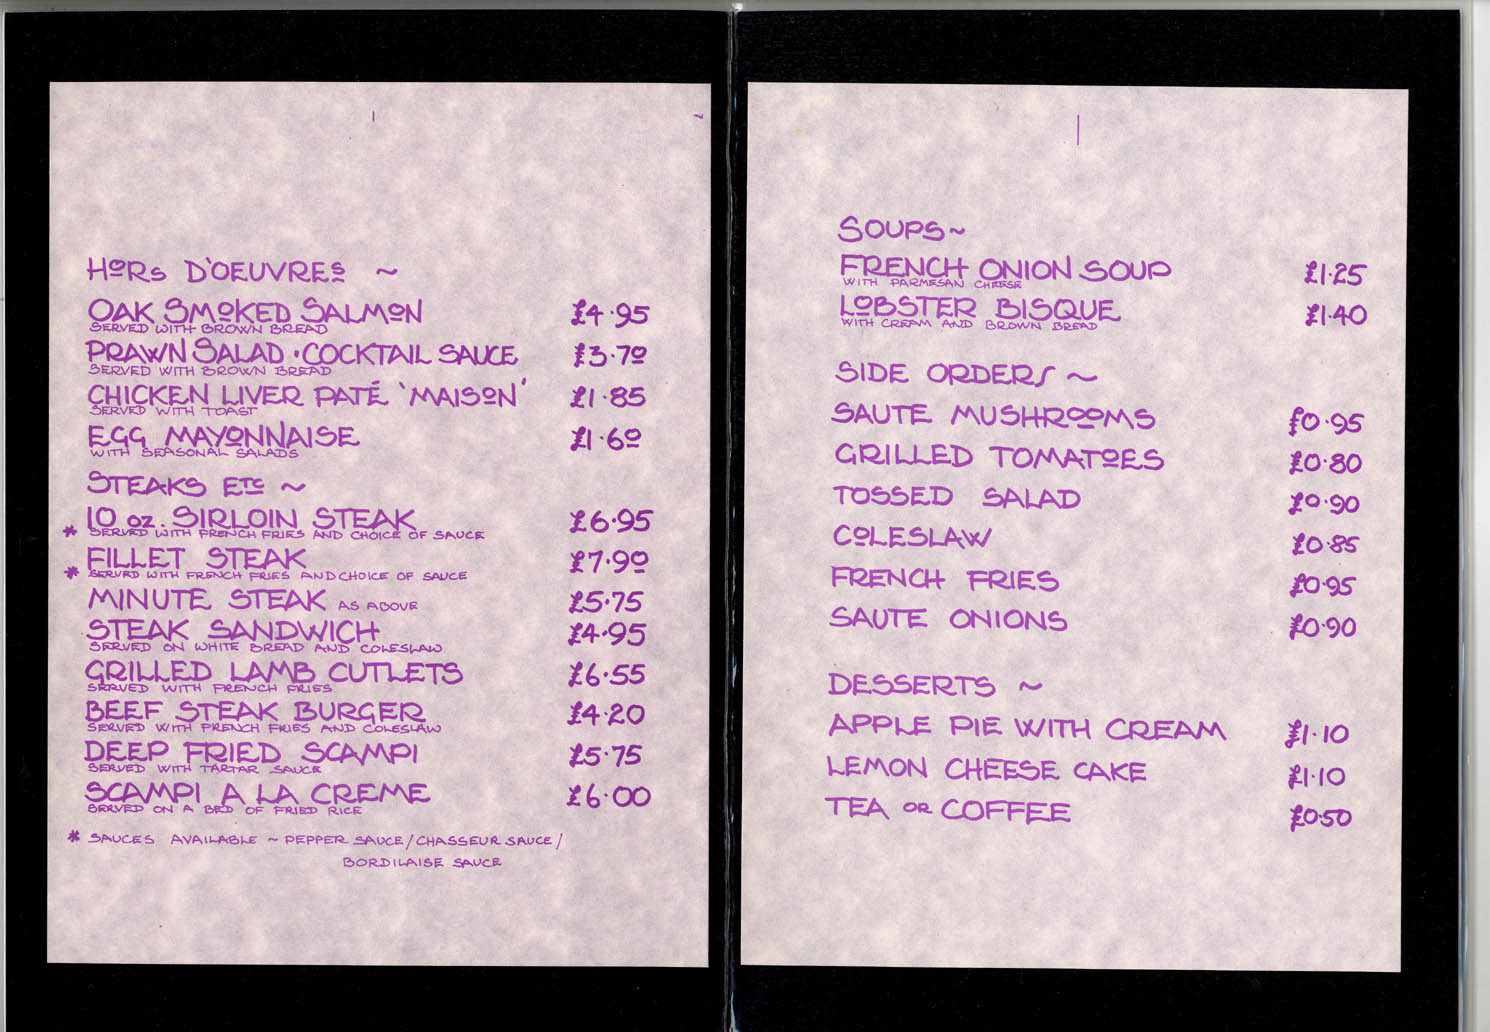 HORS D'OEUVRES ~
OAK SMOKED SALMON £4.95
SERVED WITH BROWN BREAD
PRAWN SALAD · COCKTAIL SAUCE £3.70
SERVED WITH BROWN BREAD
CHICKEN LIVER PATÉ 'MAISON' £1.85
SERVED WITH TOAST
EGG MAYONNAISE £1.60
WITH SEASONAL SALADS
STEAKS ETC ~
10 oz. SIRLOIN STEAK £6.95
* SERVED WITH FRENCH FRIES AND CHOICE OF SAUCE
FILLET STEAK £7.90
* SERVED WITH FRENCH FRIES AND CHOICE OF SAUCE
MINUTE STEAK AS ABOVE £5.75
STEAK SANDWICH £4.95
SERVED ON WHITE BREAD AND COLESLAW
GRILLED LAMB CUTLETS £6.55
SERVED WITH FRENCH FRIES
BEEF STEAK BURGER £4.20
SERVED WITH FRENCH FRIES AND COLESLAW
DEEP FRIED SCAMPI £5.75
SERVED WITH TARTAR SAUCE
SCAMPI A LA CREME £6.00
SERVED ON A BED OF FRIED RICE
* SAUCES AVAILABLE ~ PEPPER SAUCE / CHASSEUR SAUCE /
BORDILAISE SAUCE
SOUPS ~
FRENCH ONION SOUP £1.25
WITH PARMESAN CHEESE
LOBSTER BISQUE £1.40
WITH CREAM AND BROWN BREAD
SIDE ORDERS ~
SAUTE MUSHROOMS £0.95
GRILLED TOMATOES £0.80
TOSSED SALAD £0.90
COLESLAW £0.85
FRENCH FRIES £0.95
SAUTE ONIONS £0.90
DESSERTS ~
APPLE PIE WITH CREAM £1.10
LEMON CHEESE CAKE £1.10
TEA OR COFFEE £0.50